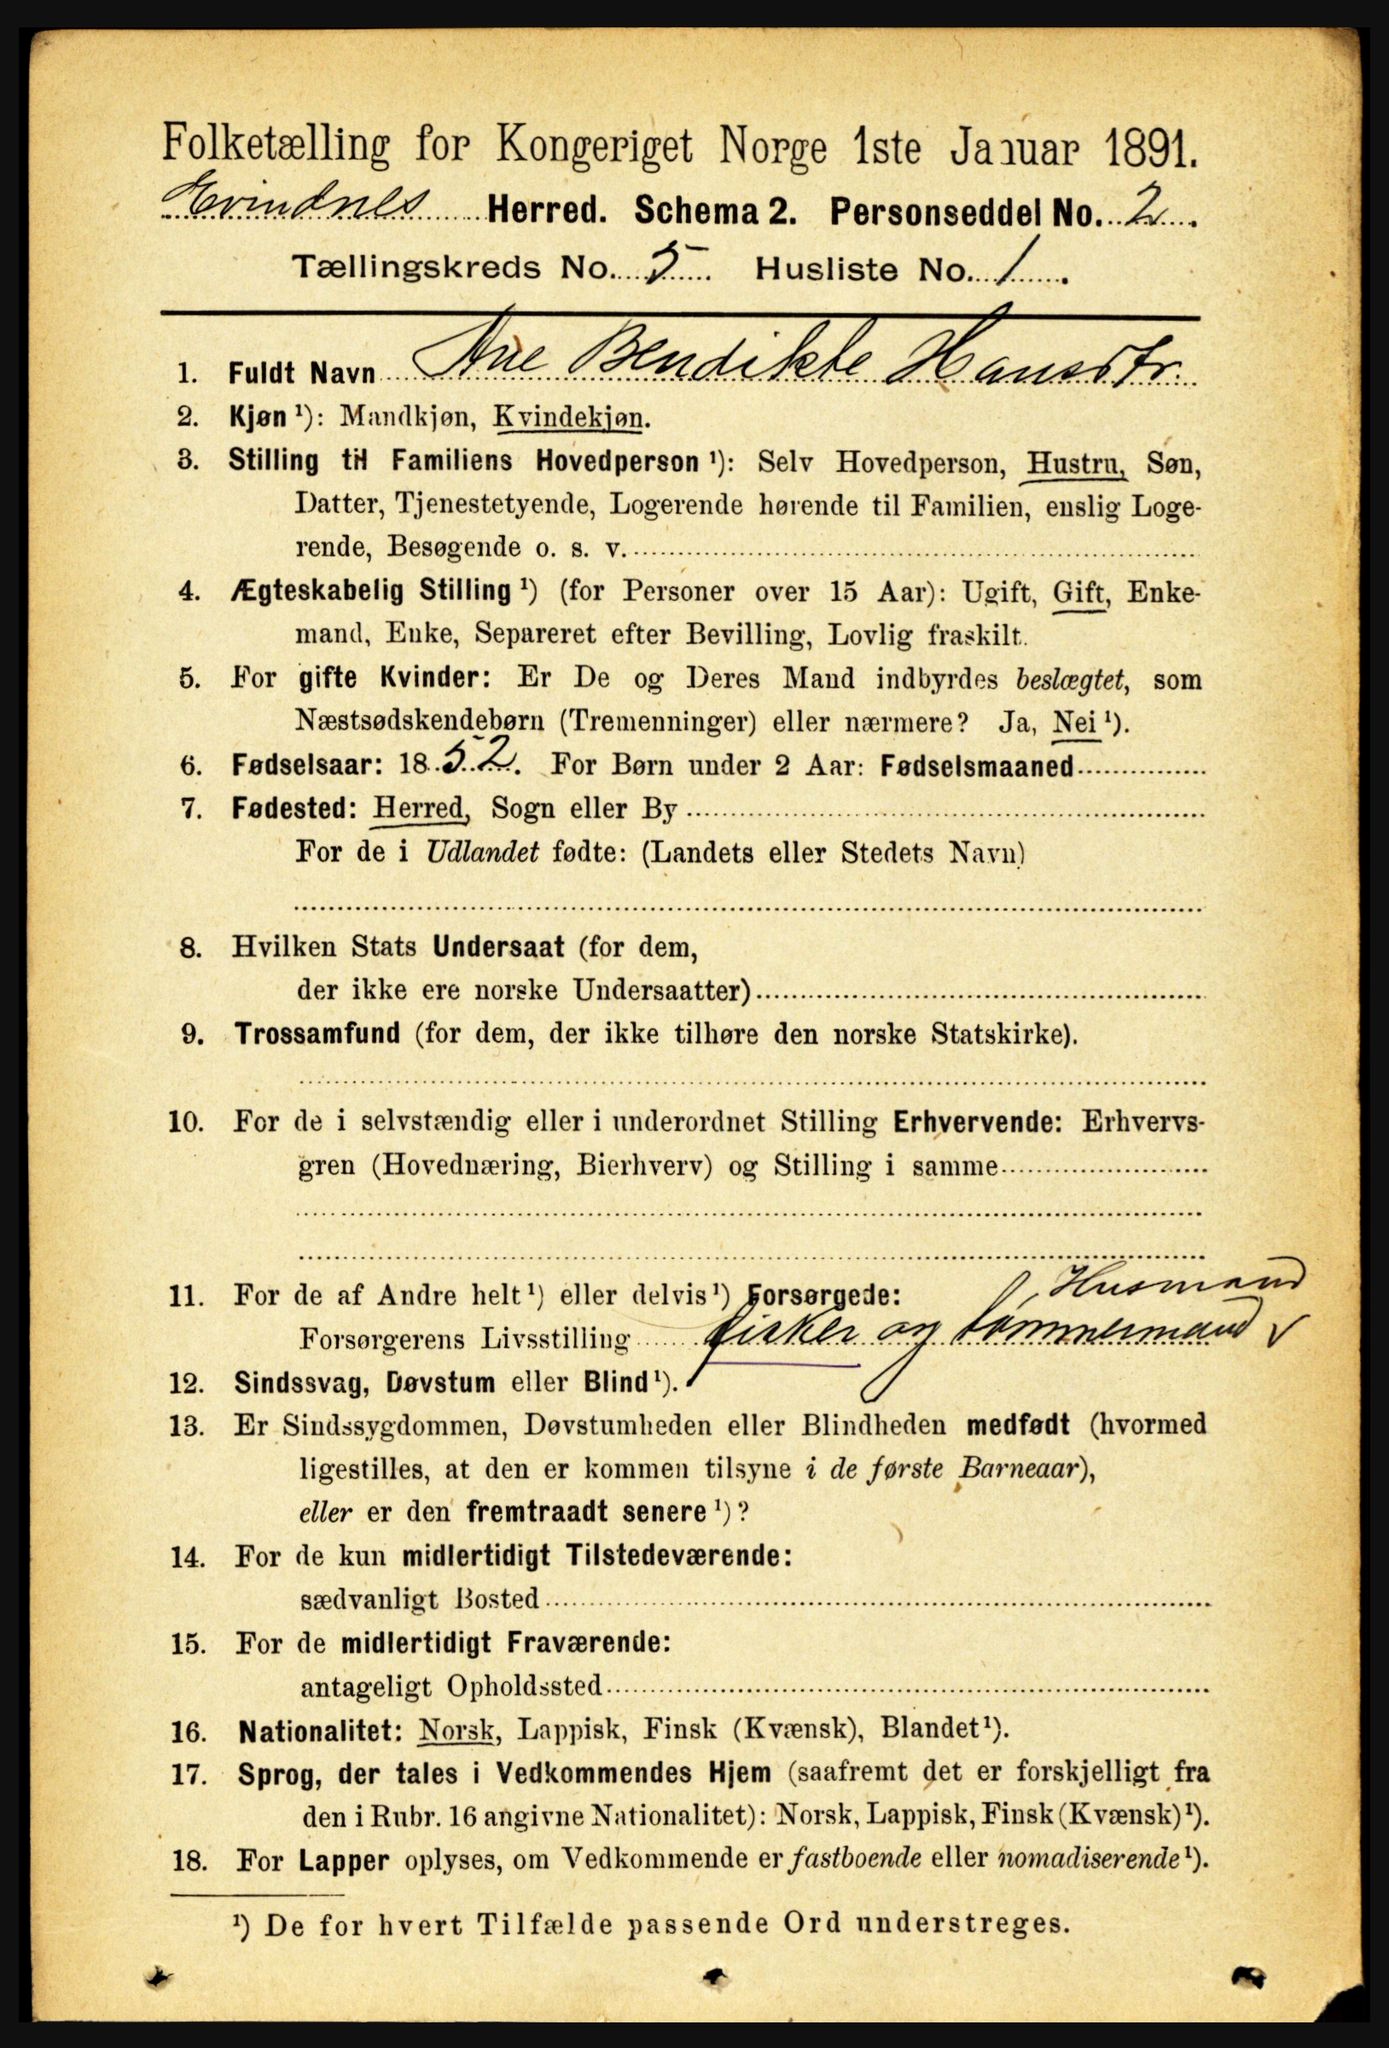 Folketælling for Kongeriget Norge 1ste Januar 1891.
Evindnes Herred. Schema 2. Personseddel No. 2.
Tællingskreds No. 5. Husliste No. 1.
1. Fuldt Navn Ane Bendikte Hansdtr.
2. Kjøn ¹): Mandkjøn, Kvindekjøn.
3. Stilling til Familiens Hovedperson ¹): Selv Hovedperson, Hustru, Søn,
Datter, Tjenestetyende, Logerende hørende til Familien, enslig Loge-
rende, Besøgende o. s. v.
4. Ægteskabelig Stilling ¹) (for Personer over 15 Aar): Ugift, Gift, Enke-
mand, Enke, Separeret efter Bevilling, Lovlig fraskilt.
5. For gifte Kvinder: Er De og Deres Mand indbyrdes beslægtet, som
Næstsødskendebørn (Tremenninger) eller nærmere? Ja, Nei ¹).
6. Fødselsaar: 1852. For Børn under 2 Aar: Fødselsmaaned
7. Fødested: Herred, Sogn eller By
For de i Udlandet fødte: (Landets eller Stedets Navn)
8. Hvilken Stats Undersaat (for dem,
der ikke ere norske Undersaatter)
9. Trossamfund (for dem, der ikke tilhøre den norske Statskirke).
10. For de i selvstændig eller i underordnet Stilling Erhvervende: Erhvervs-
gren (Hovednæring, Bierhverv) og Stilling i samme
11. For de af Andre helt ¹) eller delvis ¹) Forsørgede: Husmand
Forsørgerens Livsstilling fisker og tømmermand
12. Sindssvag, Døvstum eller Blind ¹).
13. Er Sindssygdommen, Døvstumheden eller Blindheden medfødt (hvormed
ligestilles, at den er kommen tilsyne i de første Barneaar),
eller er den fremtraadt senere ¹)?
14. For de kun midlertidigt Tilstedeværende:
sædvanligt Bosted
15. For de midlertidigt Fraværende:
antageligt Opholdssted
16. Nationalitet: Norsk, Lappisk, Finsk (Kvænsk), Blandet ¹).
17. Sprog, der tales i Vedkommendes Hjem (saafremt det er forskjelligt fra
den i Rubr. 16 angivne Nationalitet): Norsk, Lappisk, Finsk (Kvænsk) ¹).
18. For Lapper oplyses, om Vedkommende er fastboende eller nomadiserende ¹).
¹) De for hvert Tilfælde passende Ord understreges.